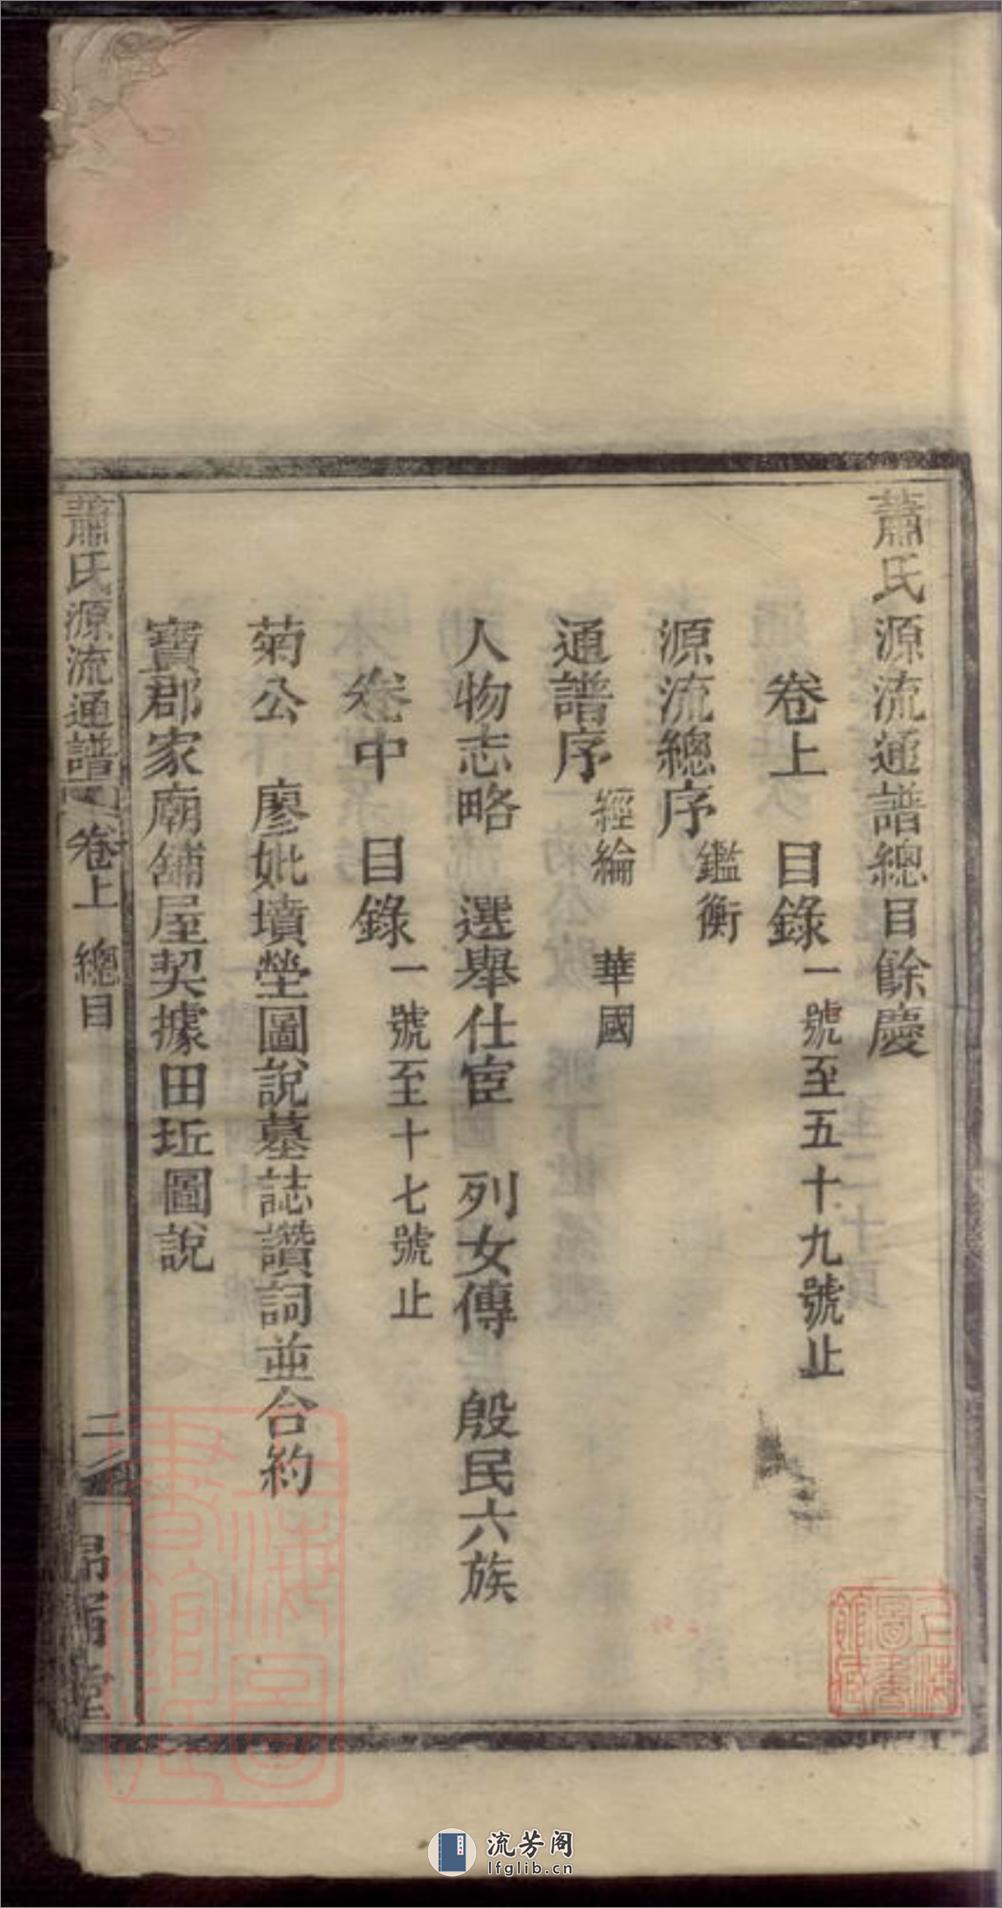 蕭氏源流通譜總目餘慶
卷上　目錄一號至五十九號止
源流總序　鑑衡
通譜序　經綸　華國
人物志略　選舉仕宦　列女傳　殷民六族
卷中　目錄一號至十七號止
菊公　廖妣墳塋圖說墓誌讚詞並合約
寶郡家廟舖屋契據田坵圖說
蕭氏源流通譜　卷上　總目　二
上海圖書館藏
上海圖書館藏
流芳阁
lfglib.cn